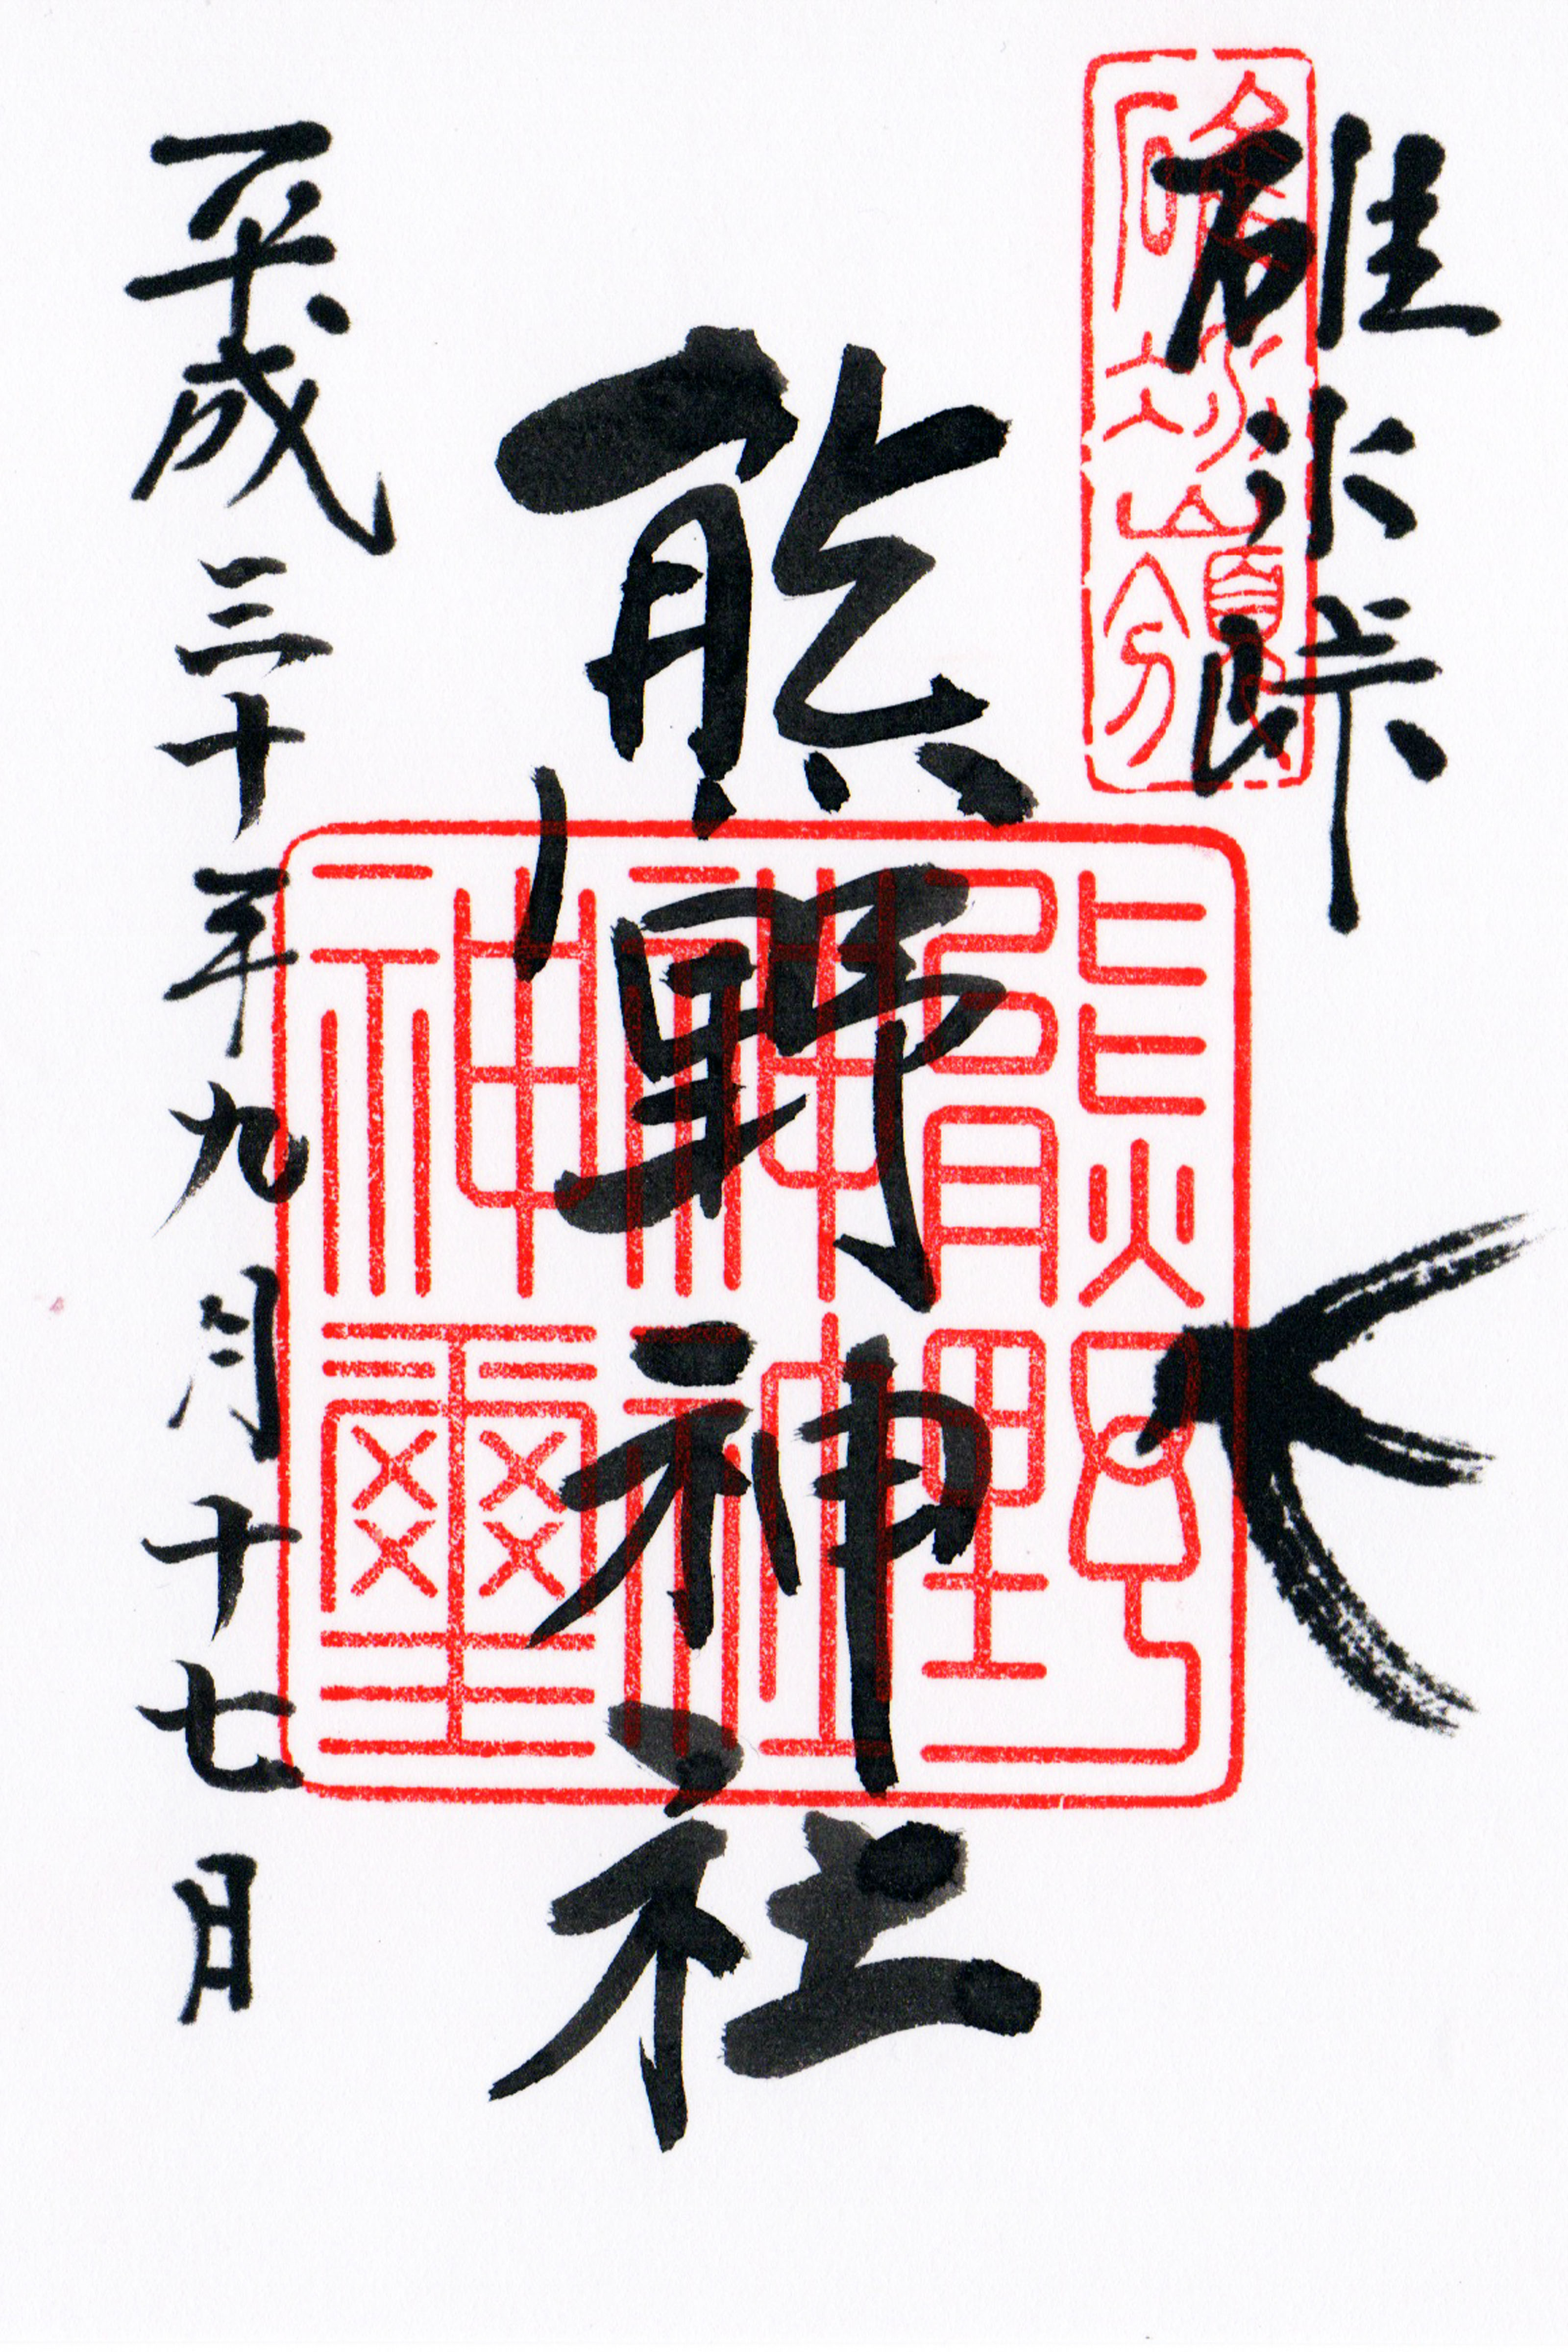 碓冰峠
碓冰嶺
熊野神社
熊野
神社
神璽
平成三十年九月十七日